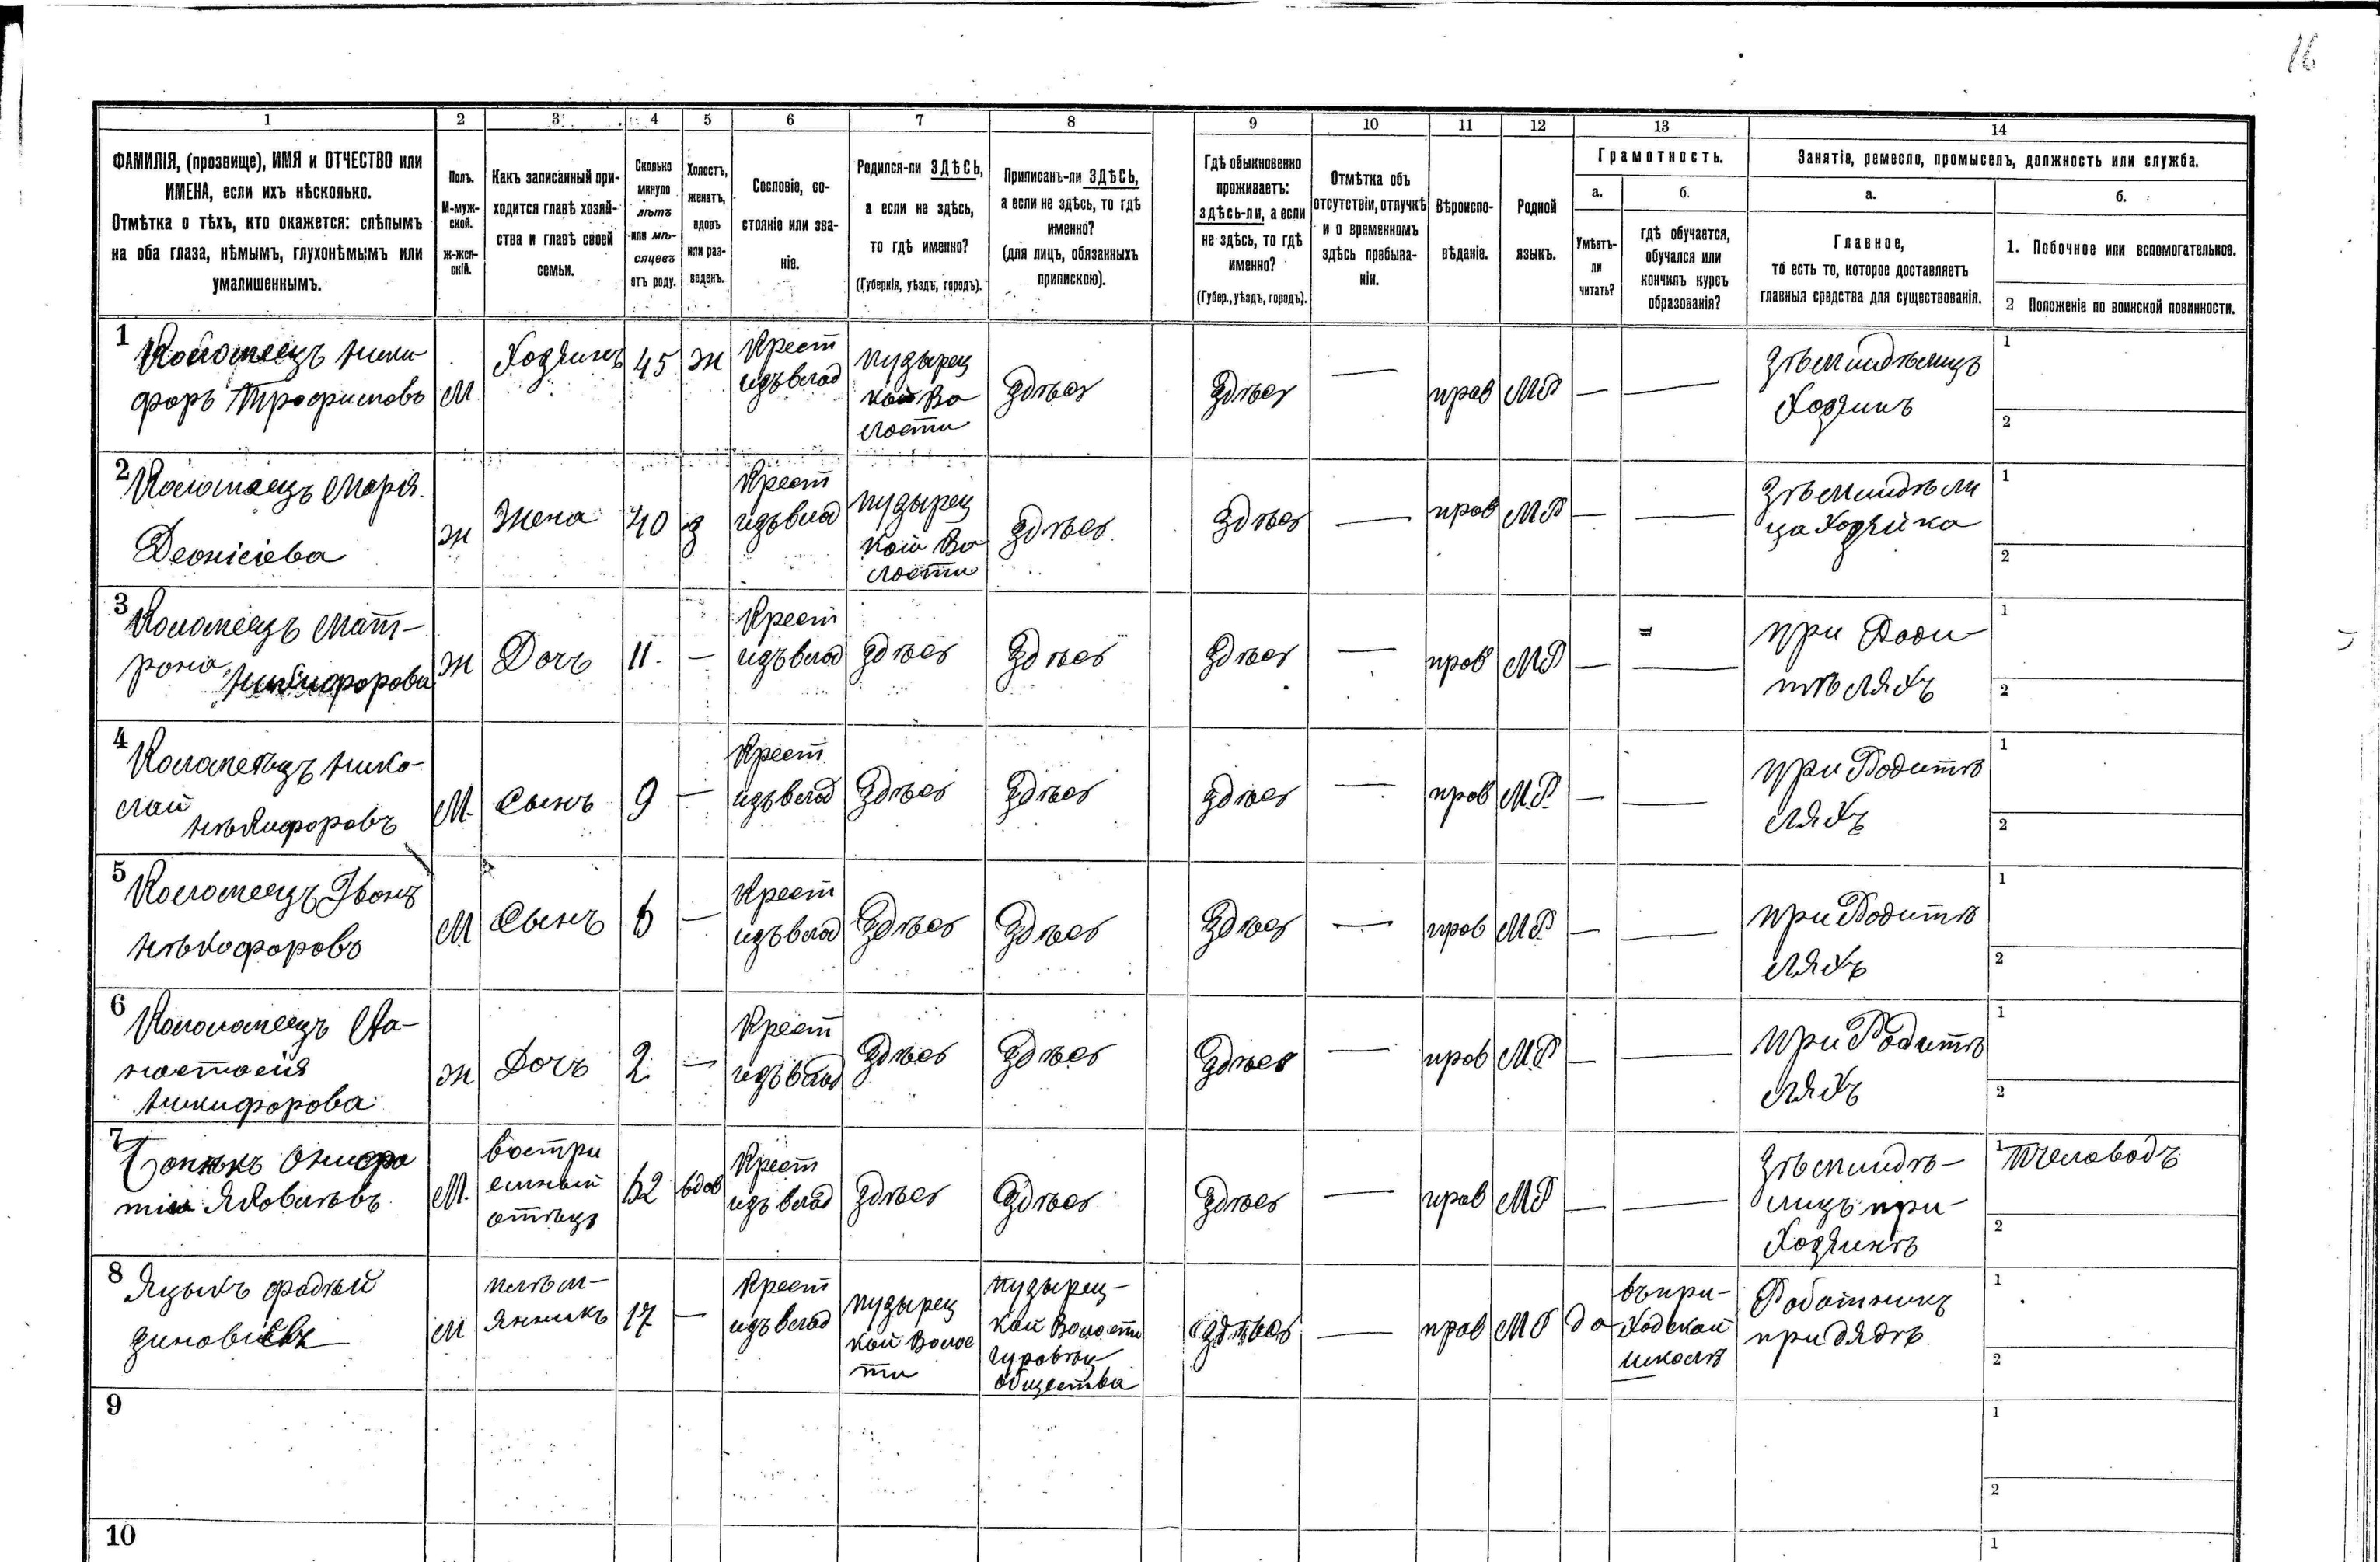 16
1 2 3 4 5 6 7 8 9 10 11 12 13 14
ФАМИЛІЯ, (прозвище), ИМЯ и ОТЧЕСТВО или
ИМЕНА, если ихъ нѣсколько.
Отмѣтка о тѣхъ, кто окажется: слѣпымъ
на оба глаза, нѣмымъ, глухонѣмымъ или
умалишеннымъ.
Полъ.
М-муж-
ской.
Ж-жен-
скій.
Какъ записанный при-
ходится главѣ хозяй-
ства и главѣ своей
семьи.
Сколько
минуло
лѣтъ
или мѣ-
сяцевъ
отъ роду.
Холостъ,
женатъ,
вдовъ
или раз-
веденъ.
Сословіе, со-
стояніе или зва-
ніе.
Родился-ли ЗДѢСЬ,
а если не здѣсь,
то гдѣ именно?
(Губернія, уѣздъ, городъ).
Приписанъ-ли ЗДѢСЬ,
а если не здѣсь, то гдѣ
именно?
(для лицъ, обязанныхъ
припискою).
Гдѣ обыкновенно
проживаетъ:
здѣсь-ли, а если
не здѣсь, то гдѣ
именно?
(Губер., уѣздъ, городъ).
Отмѣтка объ
отсутствіи, отлучкѣ
и о временномъ
здѣсь пребыва-
ніи.
Вѣроиспо-
вѣданіе.
Родной
языкъ.
Грамотность.
а.
Умѣетъ-
ли
читать?
б.
гдѣ обучается,
обучался или
кончилъ курсъ
образованія?
Занятіе, ремесло, промыселъ, должность или служба.
а.
Главное,
то есть то, которое доставляетъ
главныя средства для существованія.
б.
1. Побочное или вспомогательное.
2 Положеніе по воинской повинности.
1
Коломеецъ Ники
форъ Трофимовъ
М
Хозяинъ
45
Ж
Крест
изъ влад
пузырец
кой Во
лости
Здѣсь
Здѣсь
—
прав
МР
—
—
Зѣмлидѣлицъ
Хозяинъ
1
2
2
Коломаецъ Марія
Деонісіева
Ж
Жена
40
З
Крест
изъ влад
пузырец
кой Во
лости
Здѣсь
Здѣсь
—
прав
МР
—
—
Зѣмлидѣли
ца Хозяйка
1
2
3
Коломеецъ Мат-
рона Никифорова
Ж
Дочь
11
—
Крест
изъ влад
Здѣсь
Здѣсь
Здѣсь
—
прав
МР
—
—
при Роди
тѣляхъ
1
2
4
Коломеецъ Нико-
лай
Нѣкифоровъ
М
Сынъ
9
—
Крест
изъ влад
Здѣсь
Здѣсь
Здѣсь
—
прав
МР
—
—
при Родитѣ
ляхъ
1
2
5
Коломеецъ Іванъ
Нѣкофоровъ
М
Сынъ
—
Крест
изъ влад
Здѣсь
Здѣсь
Здѣсь
—
прав
МР
—
—
при Родитѣ
ляхъ
1
2
6
Коломеецъ Ана-
настасія
Никифорова
Ж
Дочь
2
—
Крест
изъ влад
Здѣсь
Здѣсь
Здѣсь
—
прав
МР
—
—
при Родитѣ
ляхъ
1
2
7
Яковлѣвъ
М
востри
емный
отѣцъ
62
вдов
Крест
изъ влад
Здѣсь
Здѣсь
Здѣсь
—
прав
МР
—
—
Зѣмлидѣ-
лицъ при-
Хозяинѣ
1 Пчеловодъ
2
8
Яцыкъ Фадѣй
Зиновіевъ
М
плѣм-
янникъ
17
—
Крест
изъ влад
пузырец
кой Волос
ти
пузырец-
кой Волости
Гуровец
общества
Здѣсь
—
прав
МР
да
въ при-
Ходской
школѣ
Работникъ
при дядѣ
1
2
9
1
2
10
1